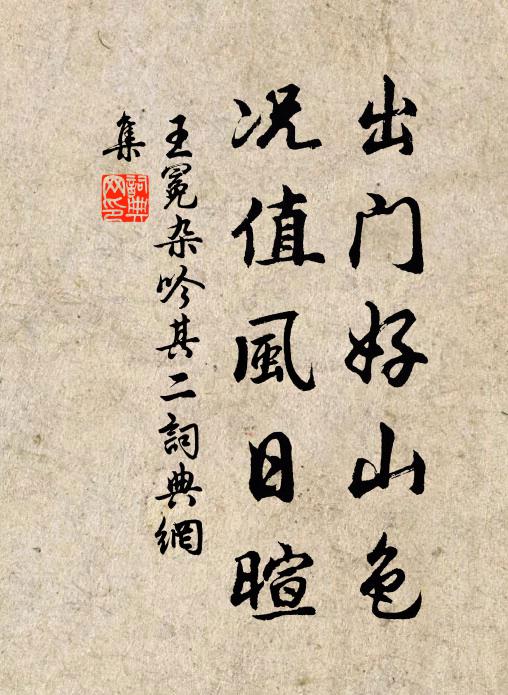 出门好山色
况值風日暄
王冕杂吟其二詞典網
集
詞典网印